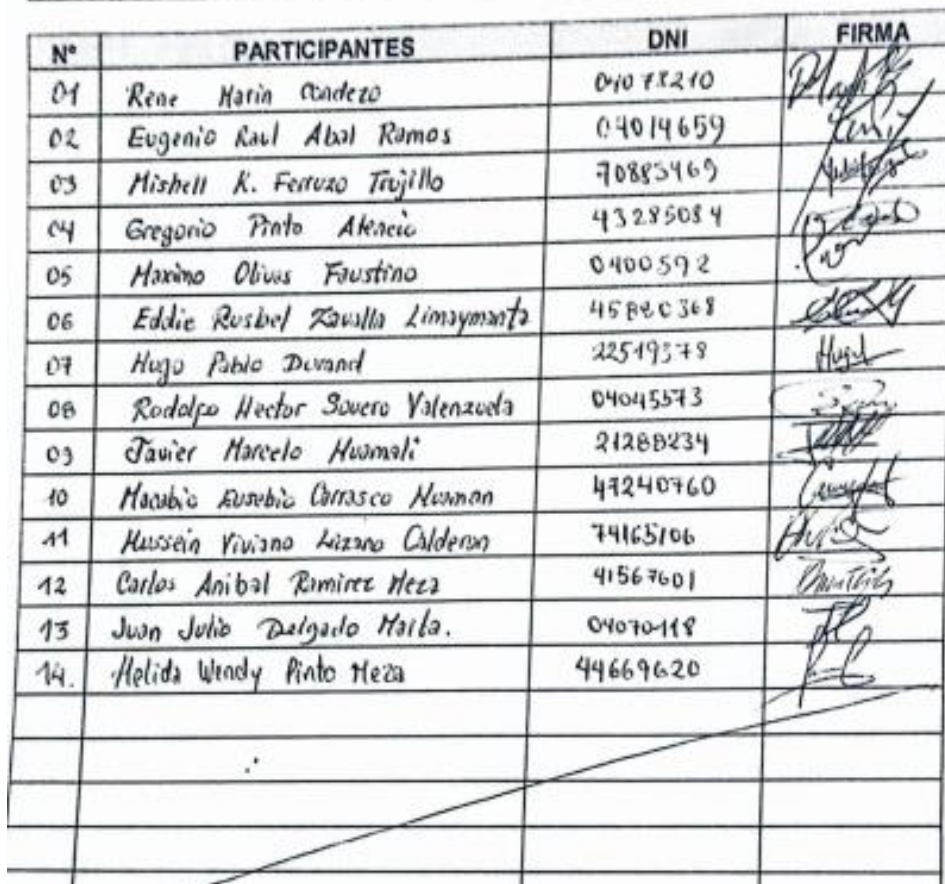 N° PARTICIPANTES DNI FIRMA
01 Rene Marin Condezo 04078210
02 Eugenio Raul Abal Ramos 04014659
03 Mishell K. Ferruzo Trujillo 70885469
04 Gregorio Pinto Atencio 43285084
05 Maximo Olivas Faustino 0400592
06 Eddie Rusbel Zavalla Limaymanta 45880368
07 Hugo Pablo Durand 22519378
08 Rodolfo Hector Souero Valenzuela 04045573
09 Javier Marcelo Huamali 21288234
10 Macabio Eusebio Carrasco Huaman 47240760
11 Hussein Viviano Lizano Calderon 74165106
12 Carlos Anibal Ramirez Meza 41567601
13 Juan Julio Delgado Marta. 04070118
14. Helida Wendy Pinto Meza 44669620